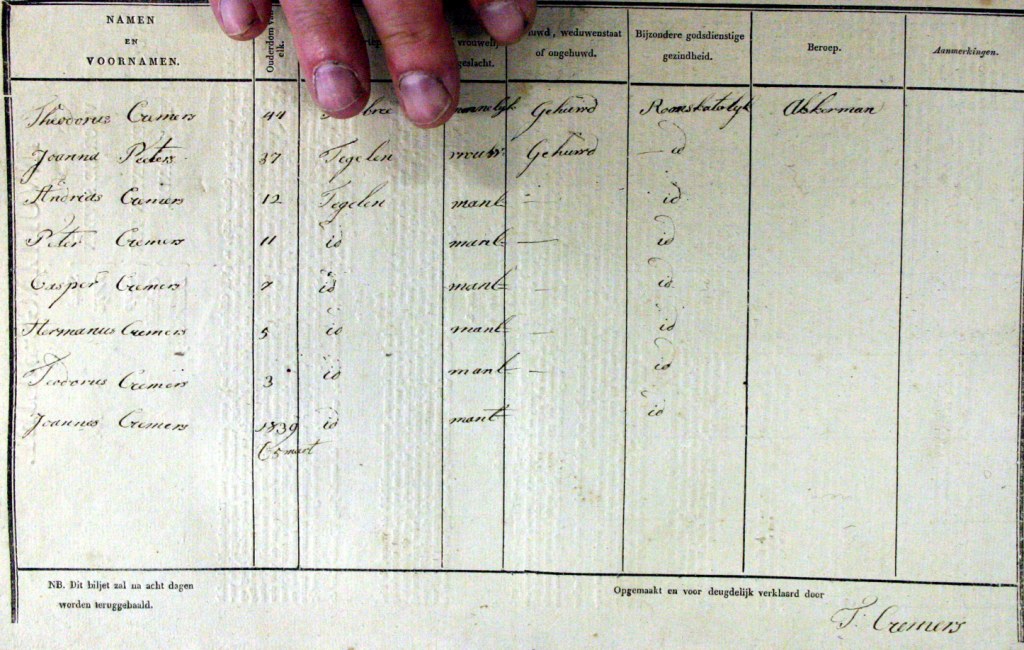 NAMEN
EN
VOORNAMEN.
Ouderdom van elk.
geslacht.
uwd, weduwenstaat of ongehuwd.
Bijzondere godsdienstige gezindheid.
Beroep.
Aanmerkingen.
Theodorus Cremers 44 bree mannelyk Gehuwd Roomskatorlyk Akkerman
Joanna Peeters 37 Tegelen vrouw Gehuwd — id
Andrias Cremers 12 Tegelen manl — id
Peter Cremers 11 id manl — id
Casper Cremers 7 id manl — id
Hermanus Cremers 5 id manl — id
Teodorus Cremers 3 id manl — id
Joannes Cremers 1839 id manl id
5 mart
NB. Dit biljet zal na acht dagen
worden teruggehaald.
Opgemaakt en voor deugdelijk verklaard door
T. Cremers